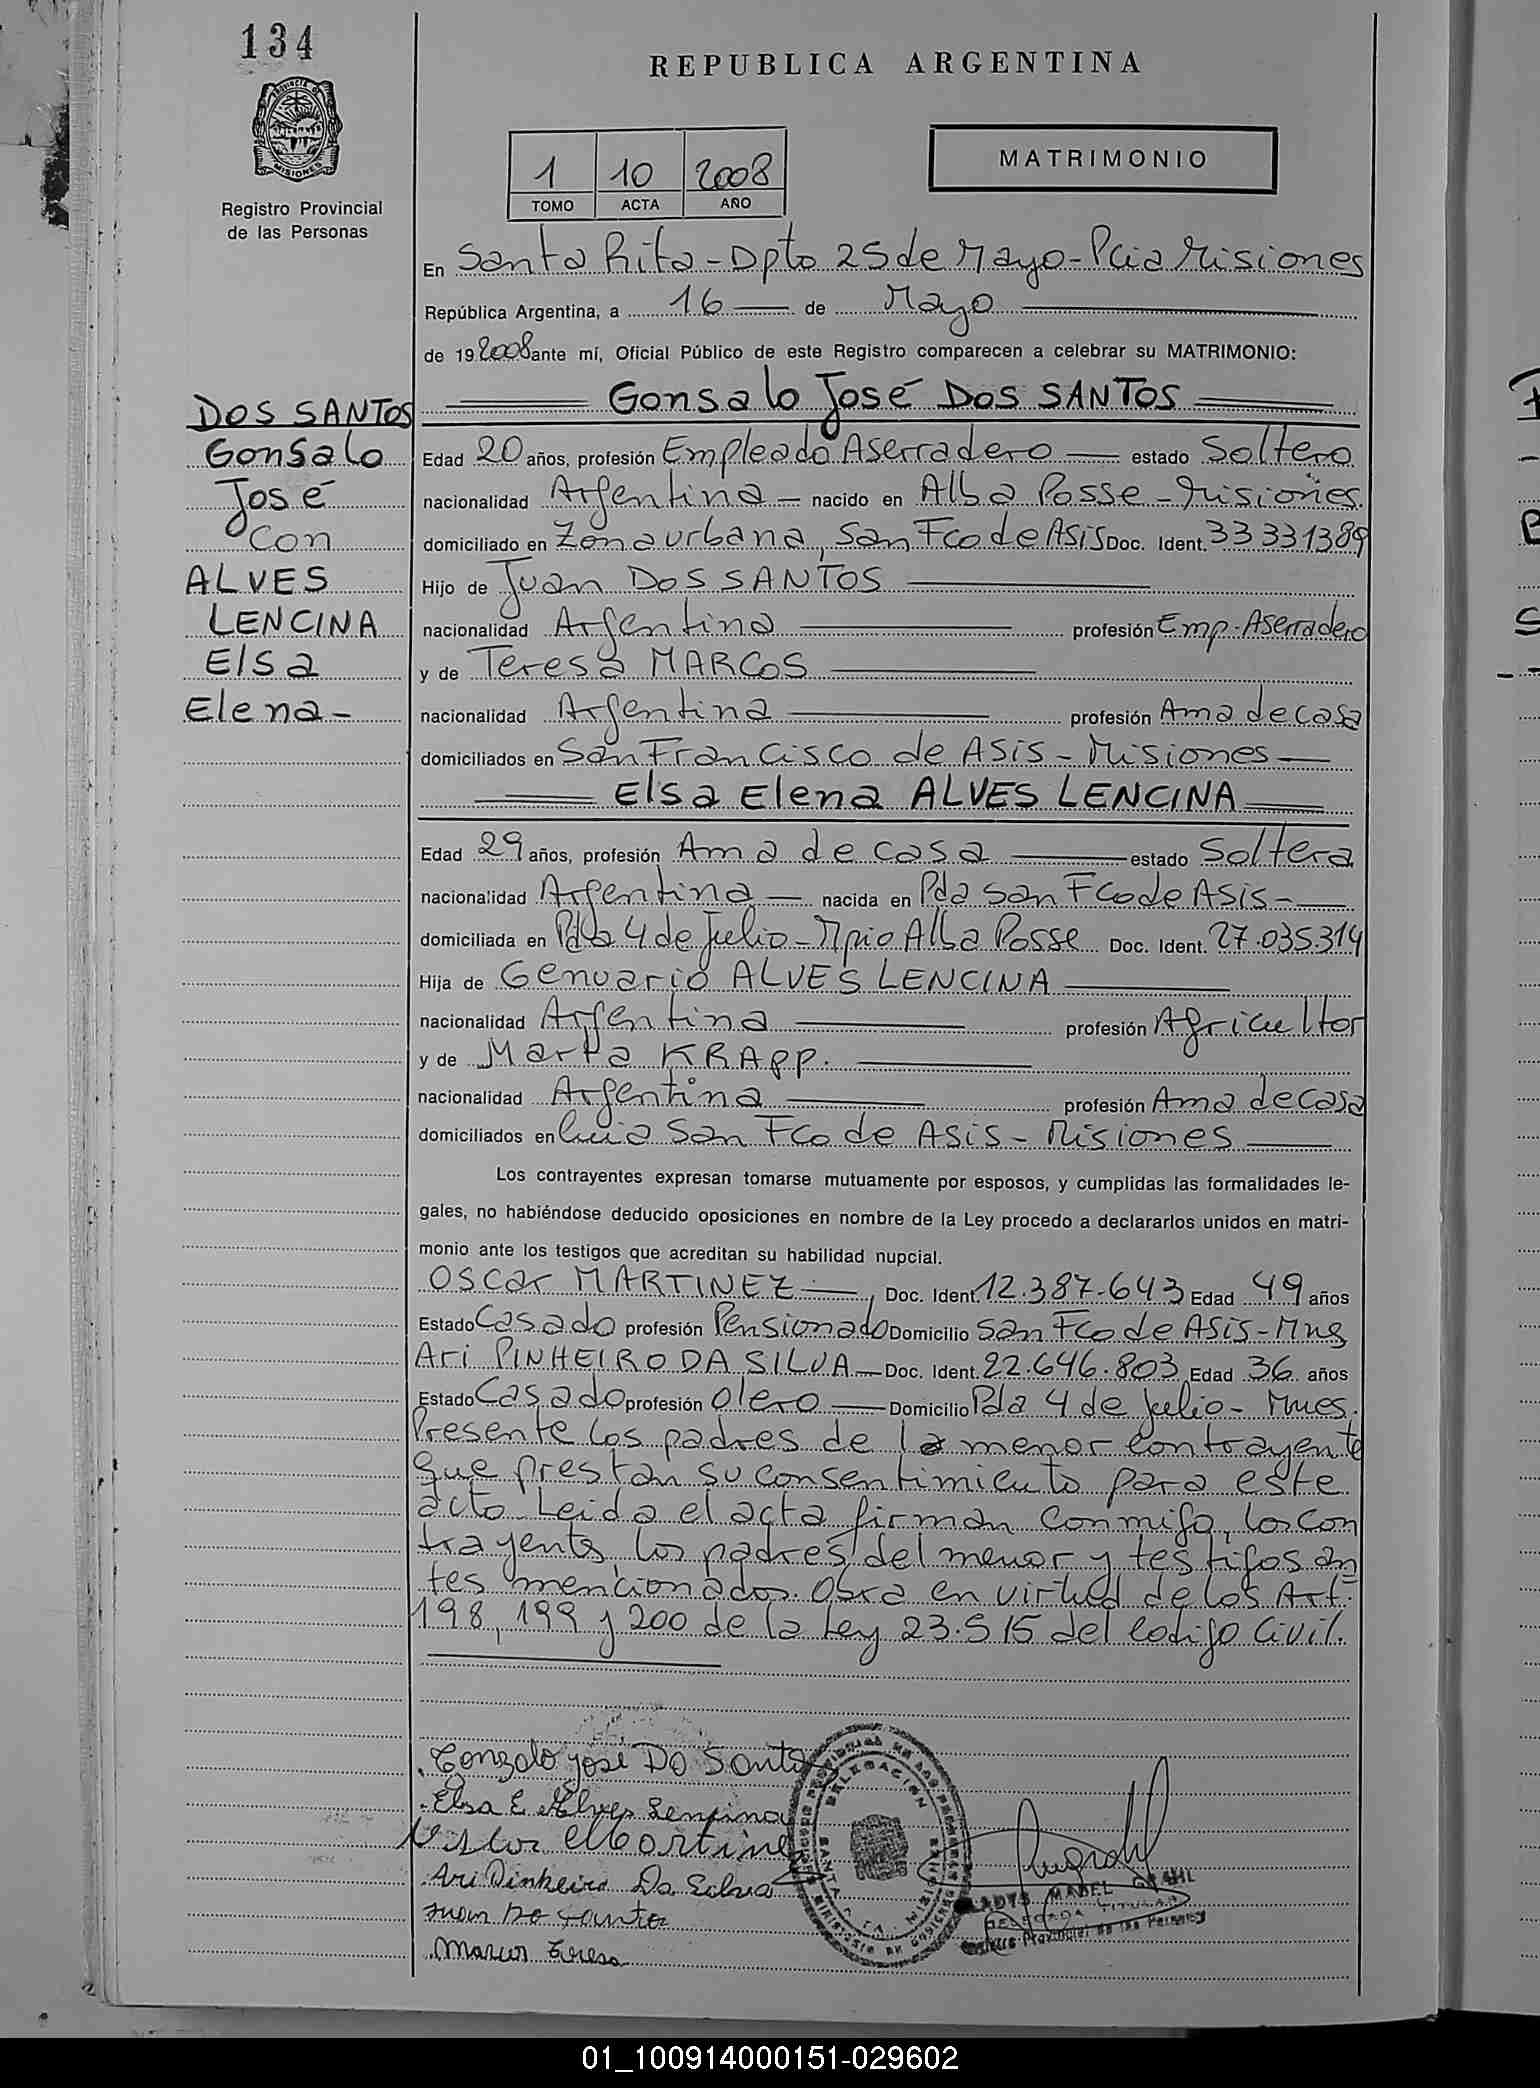 134
REPUBLICA ARGENTINA
PROVINCIA DE
MISIONES
Registro Provincial
de las Personas
1 10 2008
TOMO ACTA AÑO
MATRIMONIO
En Santa Rita - Dpto 25 de Mayo - Pcia Misiones
República Argentina, a 16 de Mayo
de 19 2008 ante mí, Oficial Público de este Registro comparecen a celebrar su MATRIMONIO:
DOS SANTOS
Gonsalo
José
Con
ALVES
LENCINA
Elsa
Elena-
Gonsalo José DOS SANTOS
Edad 20 años, profesión Empleado Aserradero estado Soltero
nacionalidad Argentina - nacido en Alba Posse - Misiones.
domiciliado en Zona urbana, San Fco de Asis Doc. Ident. 33331389
Hijo de Juan DOS SANTOS
nacionalidad Argentina profesión Emp. Aserradero
y de Teresa MARCOS
nacionalidad Argentina profesión Ama de casa
domiciliados en San Francisco de Asis - Misiones
Elsa Elena ALVES LENCINA
Edad 29 años, profesión Ama de casa estado Soltera
nacionalidad Argentina nacida en Pda San Fco de Asis -
domiciliada en Pda 4 de Julio - Mpio Alba Posse Doc. Ident. 27.035.314
Hija de Genuario ALVES LENCINA
nacionalidad Argentina profesión Agricultor
y de Marta KRAPP.
nacionalidad Argentina profesión Ama de Casa
domiciliados en San Fco de Asis - Misiones
Los contrayentes expresan tomarse mutuamente por esposos, y cumplidas las formalidades le-
gales, no habiéndose deducido oposiciones en nombre de la Ley procedo a declararlos unidos en matri-
monio ante los testigos que acreditan su habilidad nupcial.
Oscar MARTINEZ , Doc. Ident. 12.387.643 Edad 49 años
Estado Casado profesión Pensionado Domicilio San Fco de Asis - Mns
Ari PINHEIRO DA SILVA - Doc. Ident. 22.646.803 Edad 36 años
Estado Casado profesión Olero Domicilio Pda 4 de Julio - Mnes.
Presente los padres de la menor contrayente
que prestan su consentimiento para este
acto. Leida el acta firman conmigo, los con
trayents, los padres del menor y testigos an
tes mencionados. Obra en virtud de los Art.
198, 199 y 200 de la Ley 23.515 del Codigo Civil.
Gonzalo josé Do Santo
Elsa E Alves Lencina
Ari Pinheiro Da Silva
Juan Do Santo
Marcos Teresa
DELEGACION
SANTA RITA
MISIONES
GLADYS MABEL GRAHL
DELEGADA TITULAR
Registro Provincial de las Personas
01_100914000151-029602